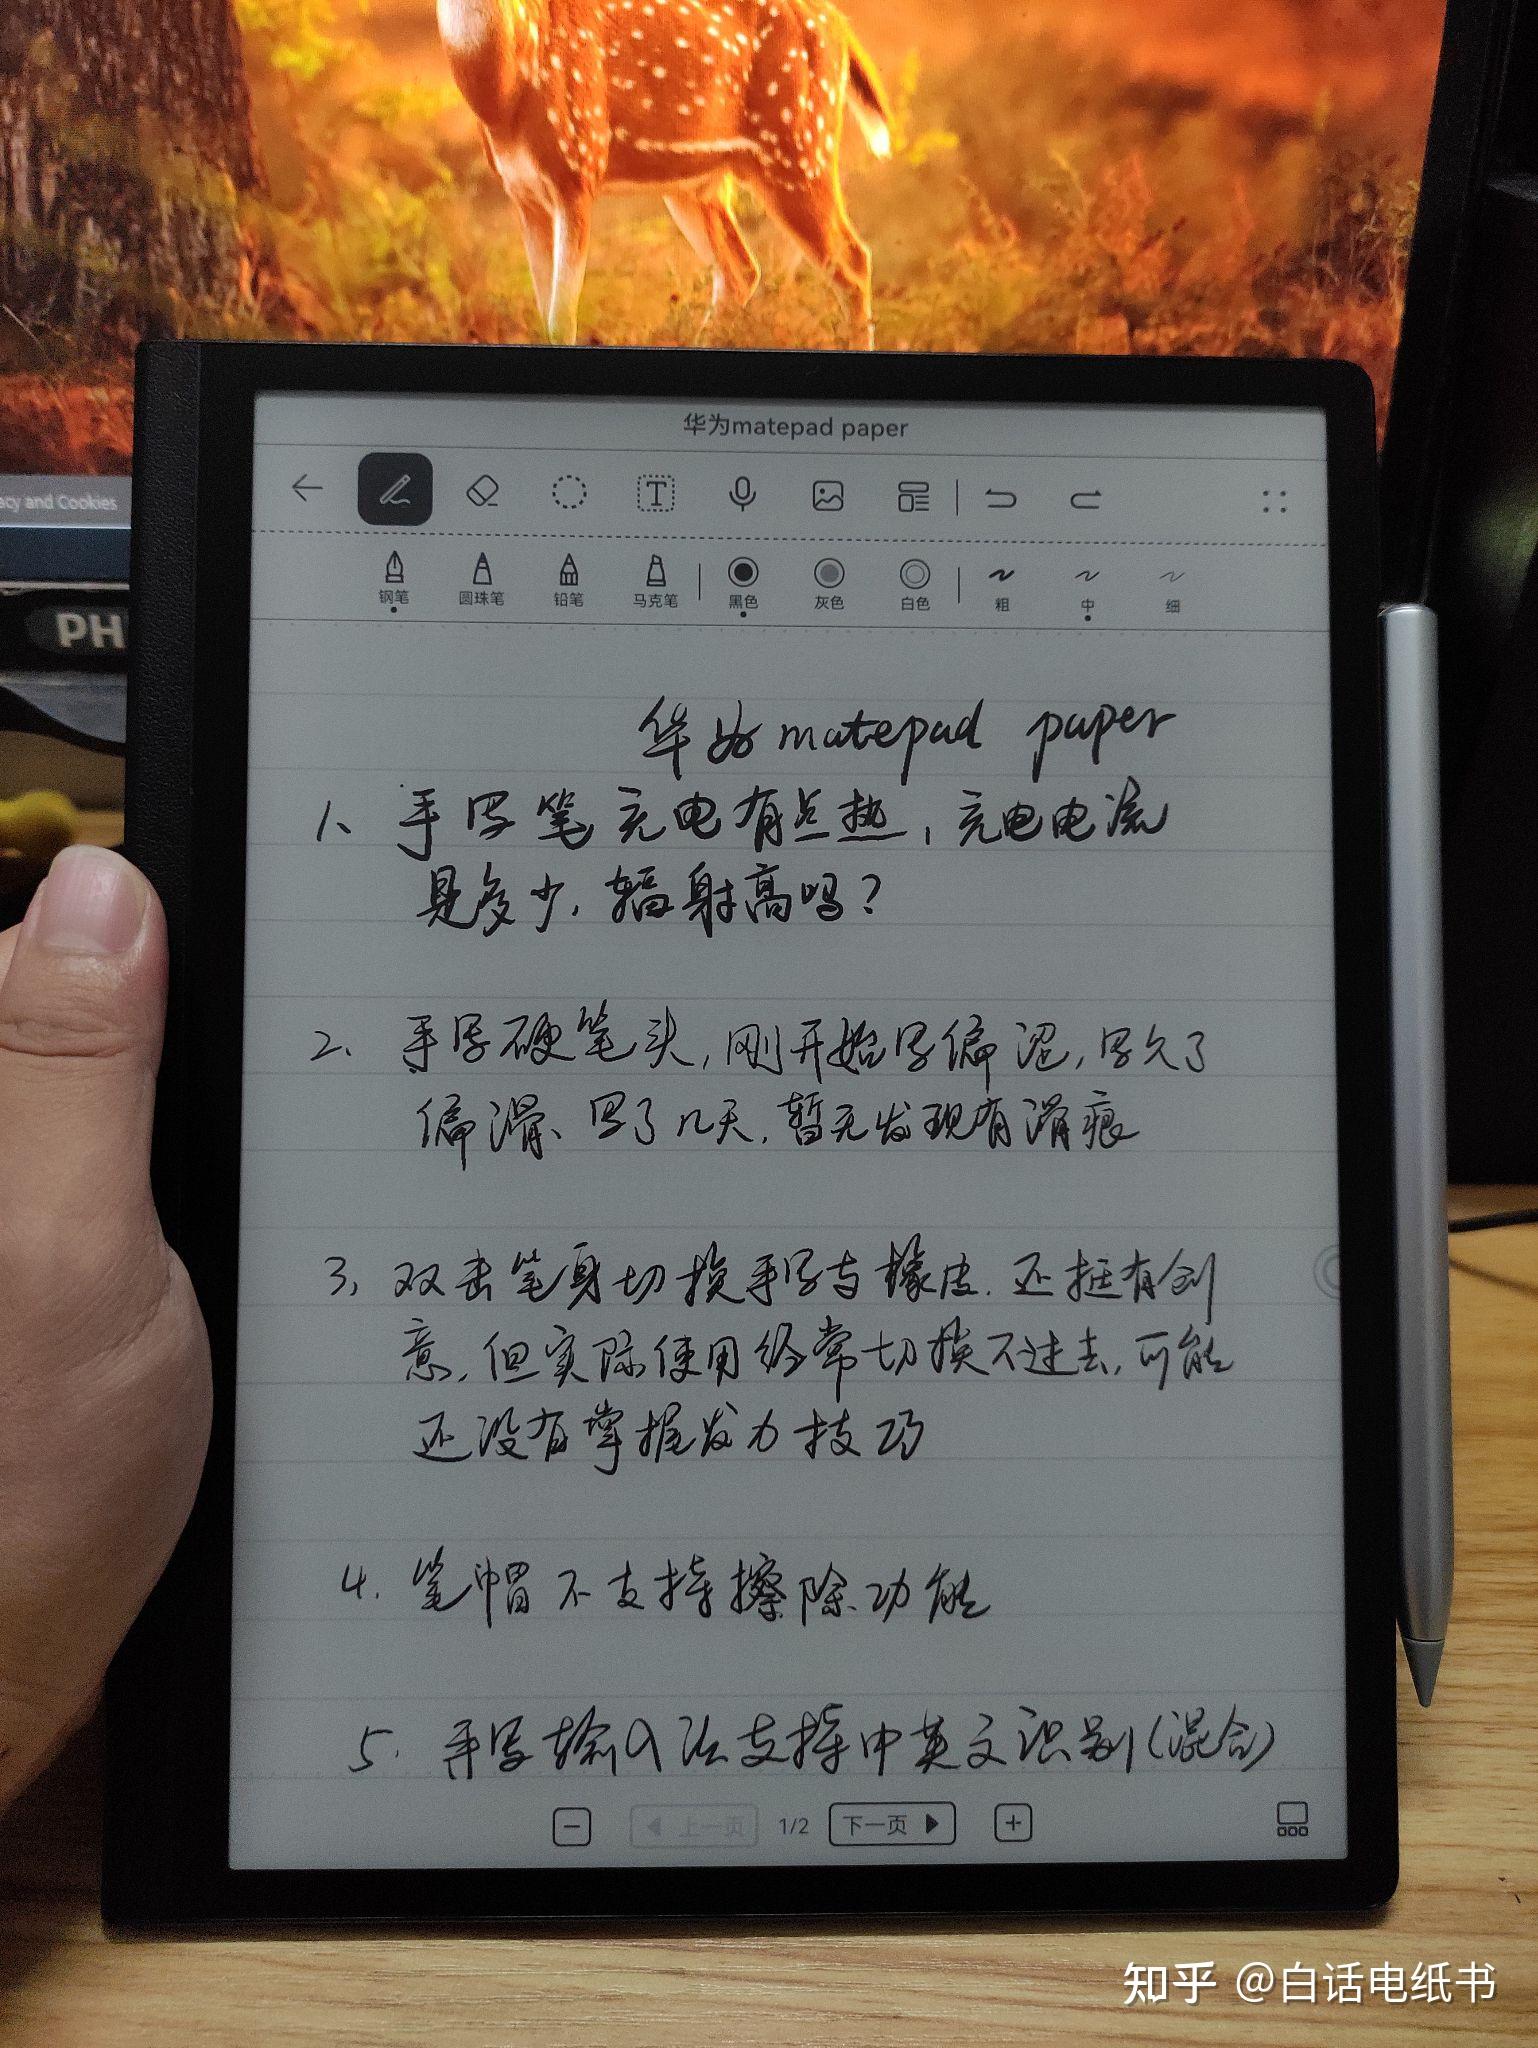 acy and Cookies
PH
华为matepad paper
钢笔 圆珠笔 铅笔 马克笔 黑色 灰色 白色 粗 中 细
华为matepad paper
1、手写笔充电有点热,充电电流
是多少,辐射高吗?
2、手写硬笔头,刚开始写偏涩,写久了
偏滑、写了几天,暂无发现有滑痕
3、双击笔身切换手写与橡皮.还挺有创
意,但实际使用经常切换不过去,可能
还没有掌握发力技巧
4.笔帽不支持擦除功能
5.手写输入法支持中英文识别(混合)
上一页 1/2 下一页
知乎 @白话电纸书